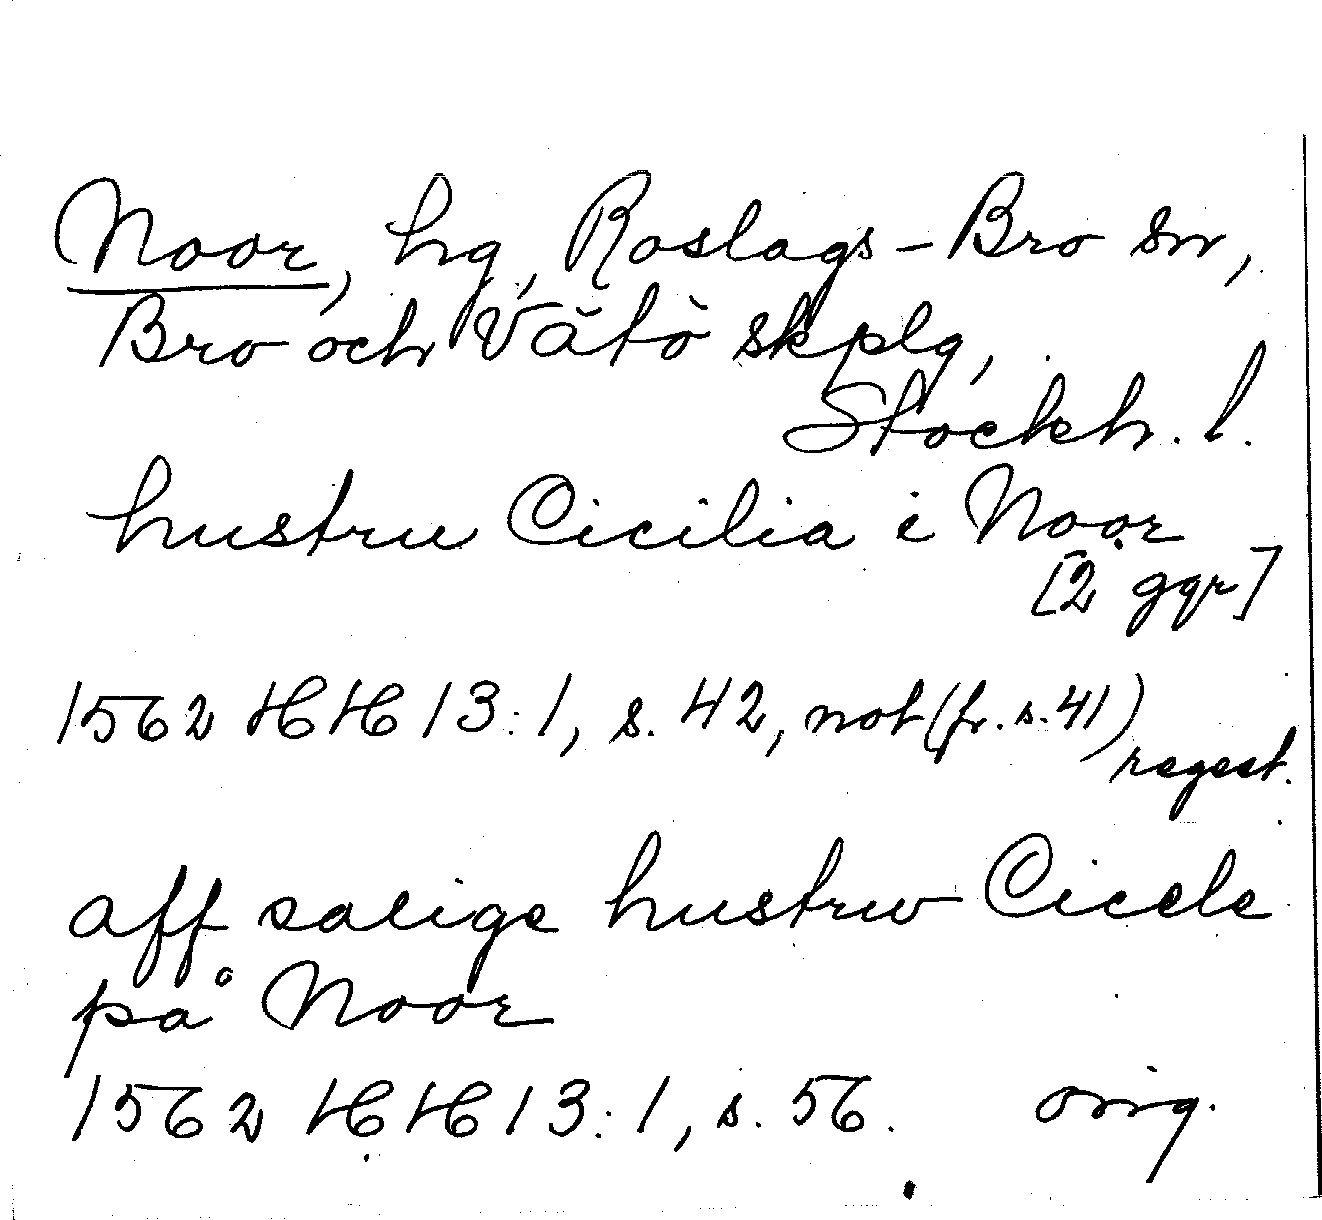 Noor, hg, Roslags-Bro sn,
Bro och Vätö skplg,
Stockh. l.
hustru Cicilia i Noor
[2 ggr]
1562 HH 13:1, s. 42, not (fr. s. 41)
regest.
aff salige hustrw Cicele
på Noor
1562 HH 13:1, s. 56. orig.